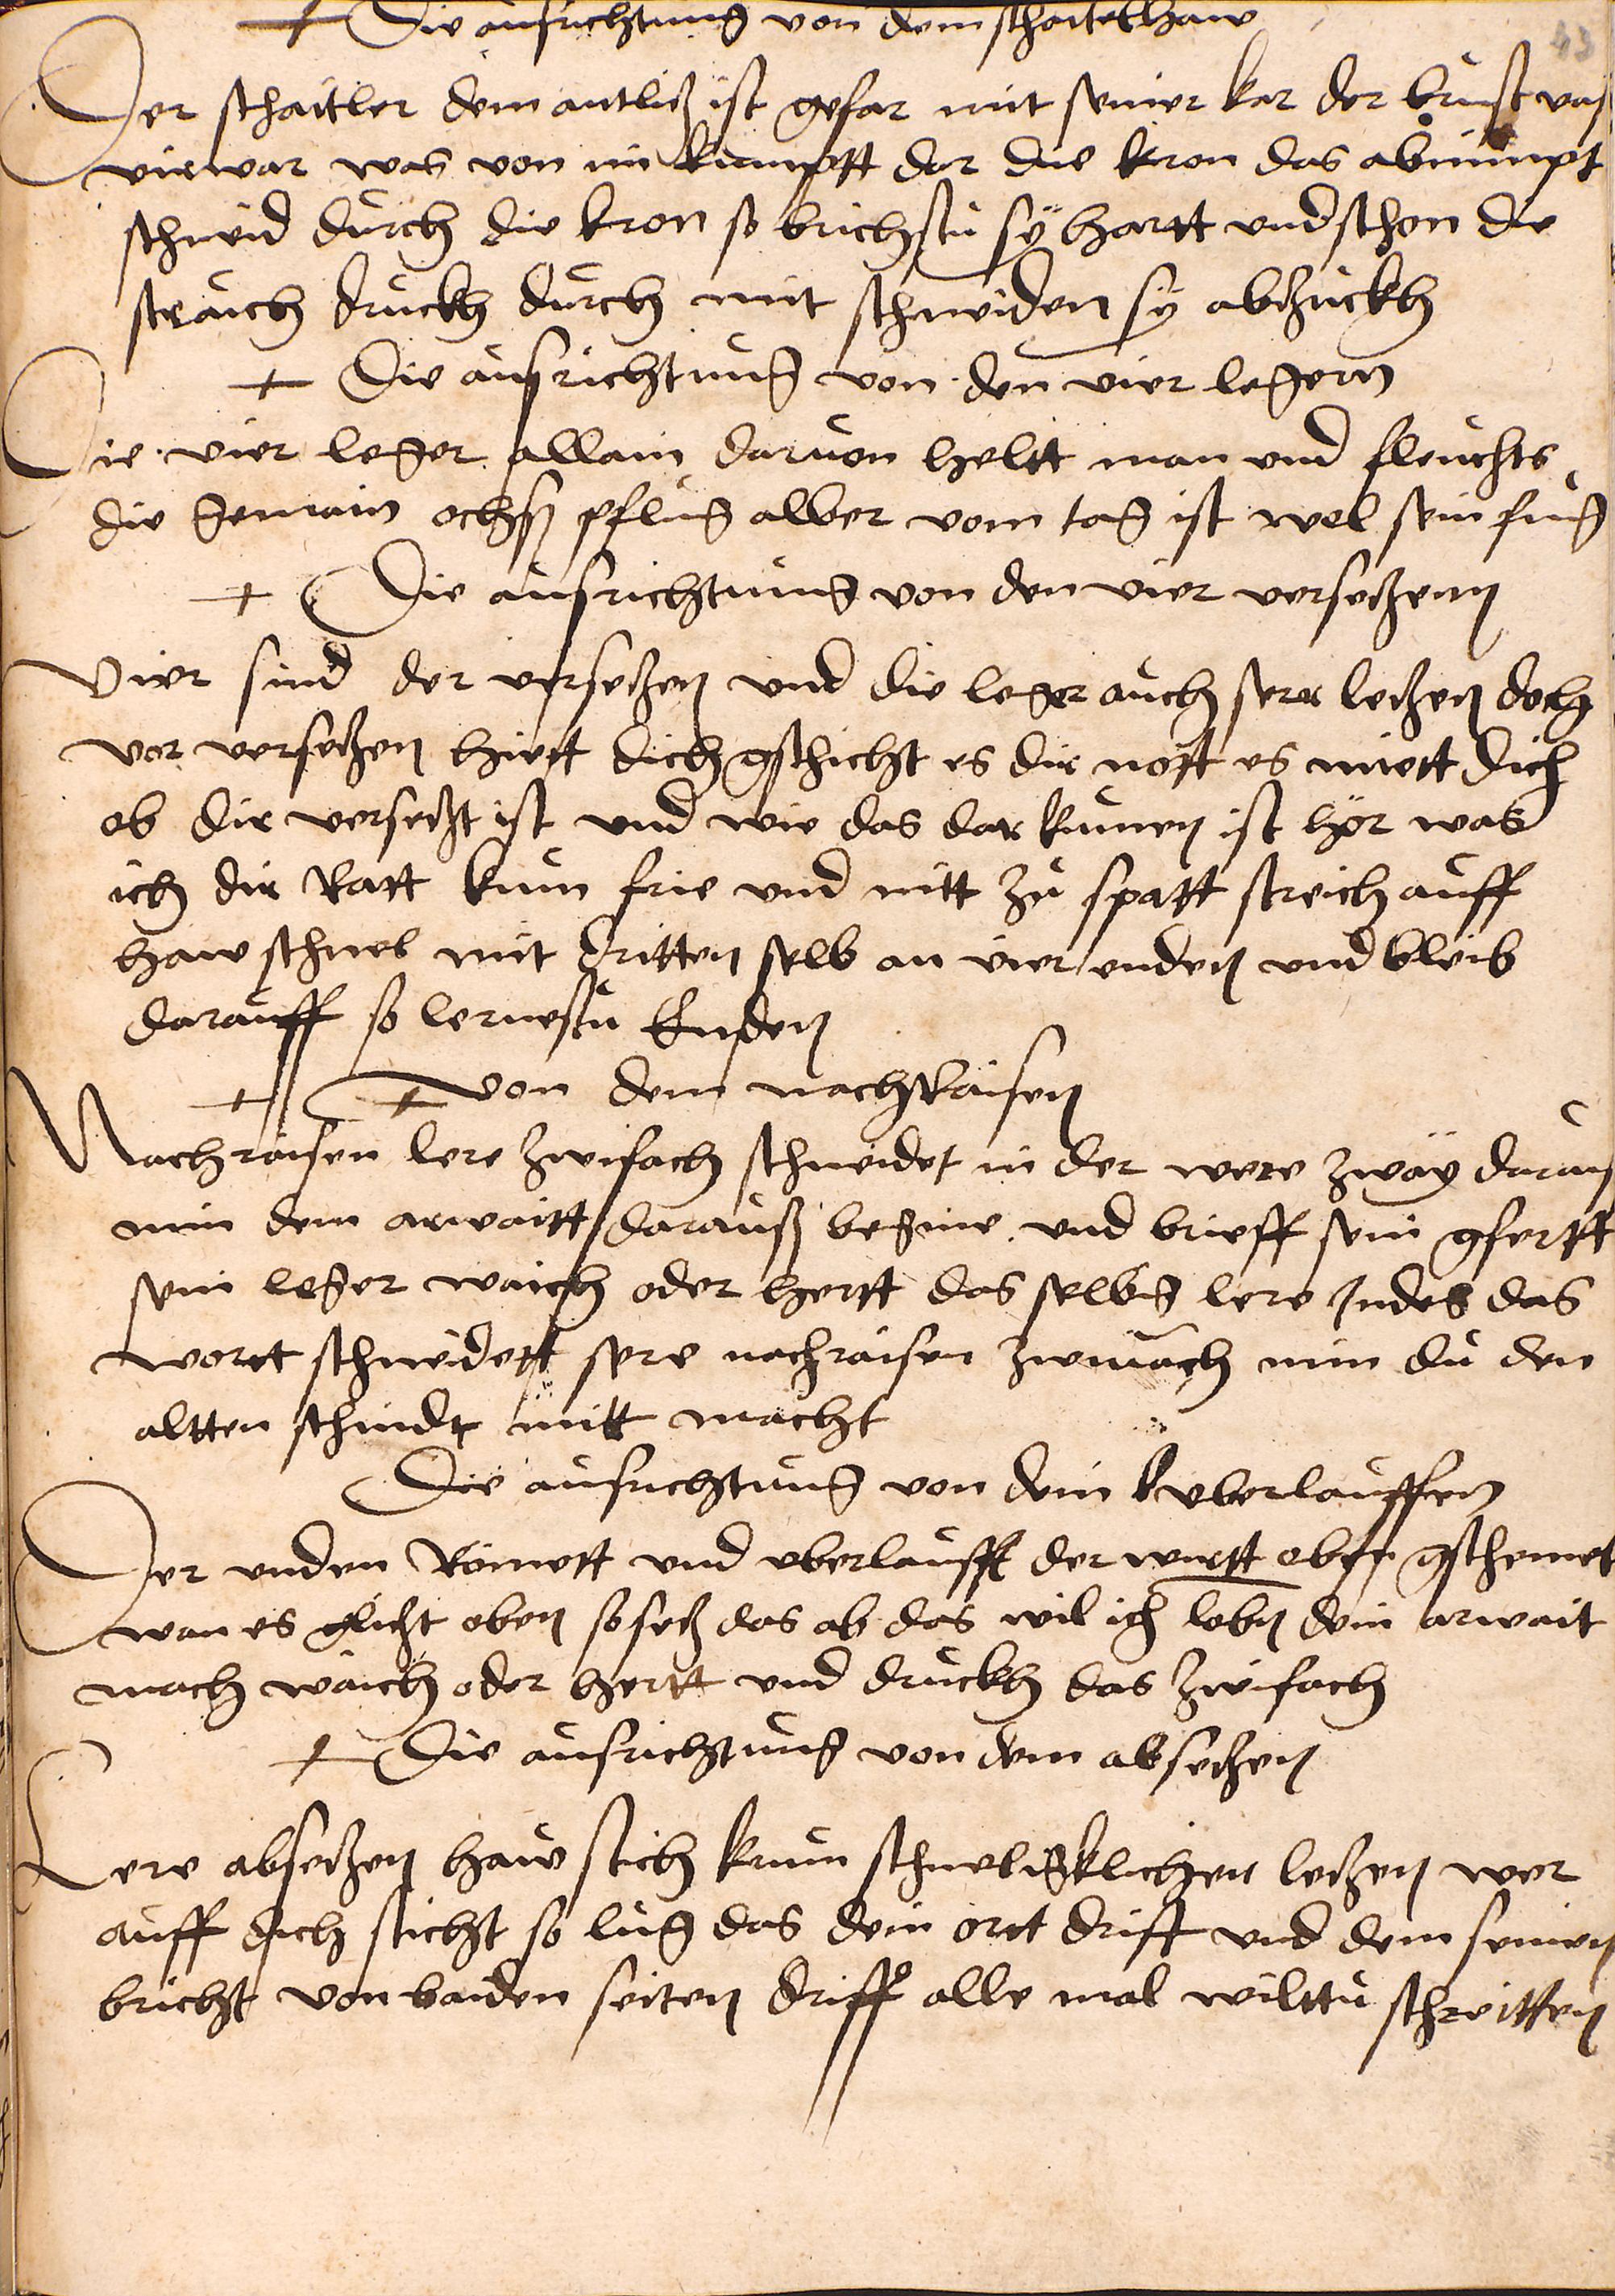 Die ausrichtung von dem schaitelhaw
43
Der schaitler dem antlitz ist gefar mit seiner kar der brust vast
virwar was von im kumptt dar die kron das abnimpt
schneid durch die kron so brichstu sÿ hartt und schon die
straich druckh durch mit schneiden sy abzuckh
Die ausrichtung von den vier legern
Die vier leger allain darvon heltt man und fleuchts
die gemain ochss pflug alber vom tag ist wol sein fug
Die ausrichtung von den vier versetzenn
Vier sind der versetzen und die leger auch serr letzen doch
vor versetzen hiett dich gschicht es dir nott es miett dich
ob dir versetzt ist und wie das dar kumen ist hör was
ich dir Ratt kum frie und nitt zu spatt streich auff
haw schnel mit dritten selb an vier enden und bleib
darauff so lernestu Enden
von dem nachRaisen
Nachraisen lere zwifach schneidet in der were zwaÿ daraus
nim dem arwaitt darauss begine und brieff sein gfertt
sein leger waich oder hertt das selbig lere Indes das
wortt schneidett sere nachraisen zwimach nim du den
altten schindt mitt macht
Die ausrichtung von dem uberlauffen
Der unden Römett und uberlaufft der wirtt oben gschemet
wan es glitzt oben so setz das ab das wil ich loben dein arwait
mach waich oder hertt und druckh das zwifach
Die ausrichtung von dem absetzen
Lere absetzen haw stich krum schneligklichen letzen wer
auff dich sticht so lug das dein ortt drift und dem seinen
bricht von baiden seiten driff alle mal wilttu schreitten